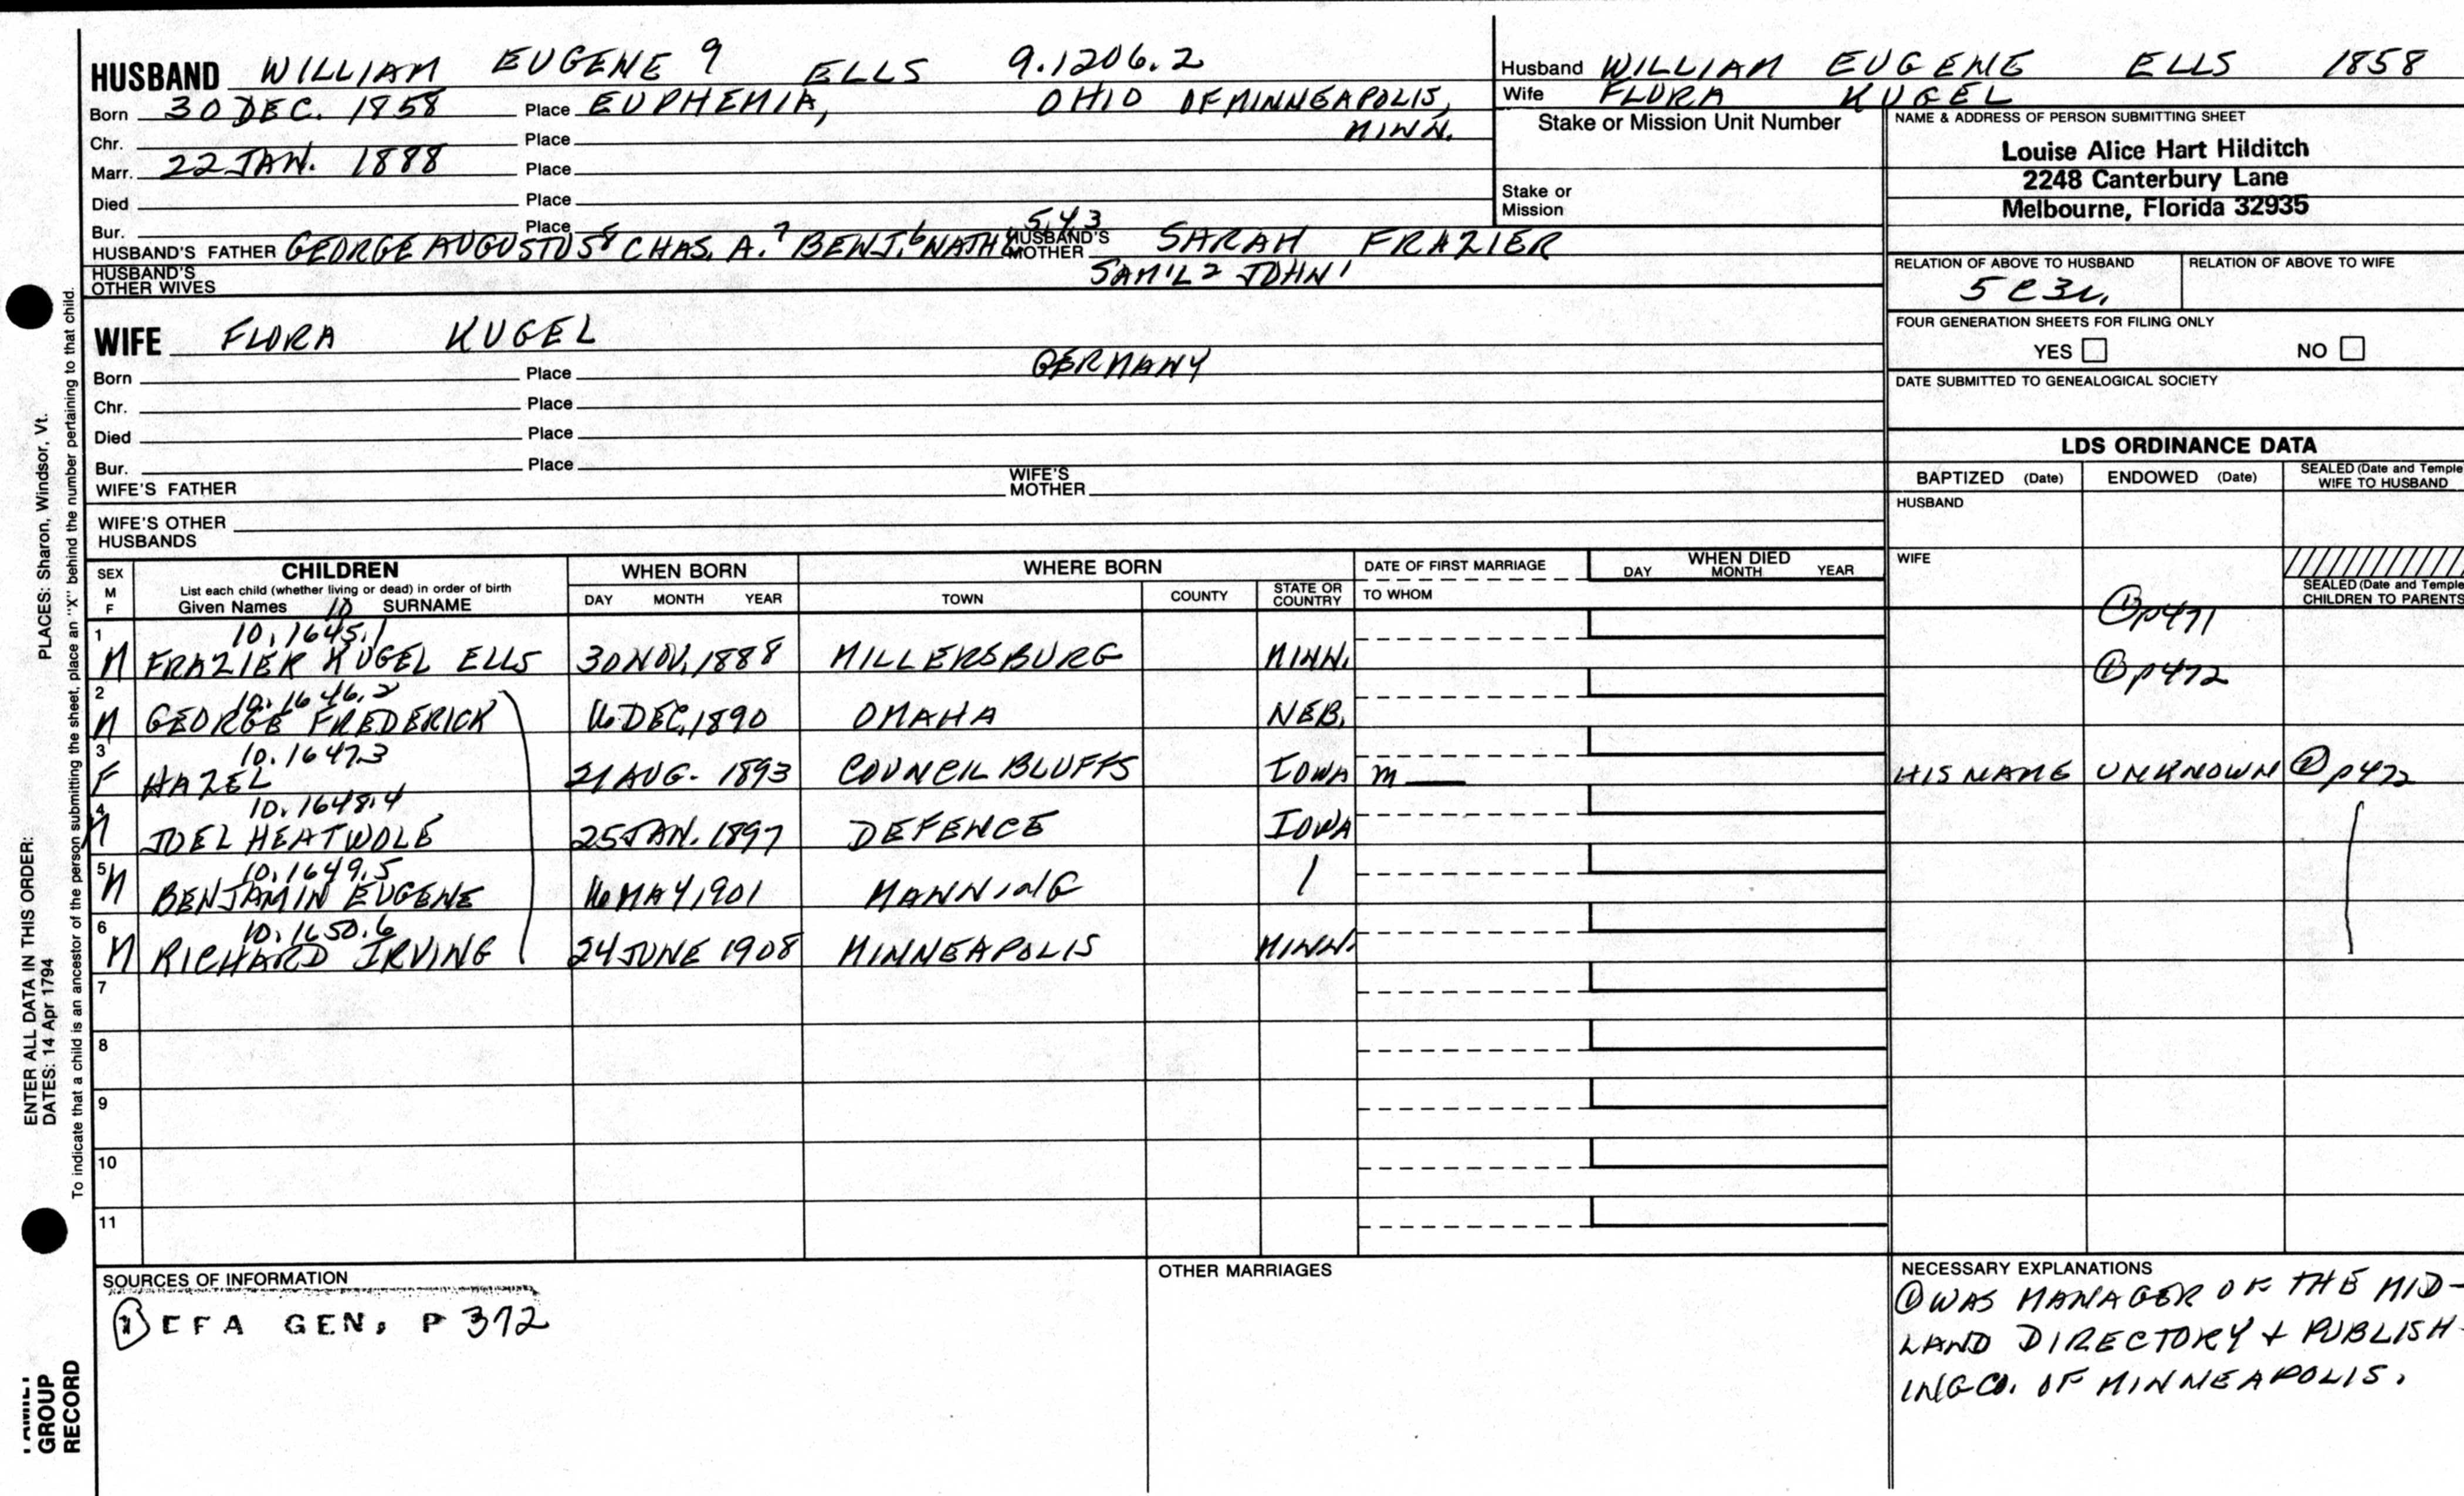 HUSBAND WILLIAM EUGENE 9 ELLS 9.1206.2
Born 30 DEC. 1858 Place EUPHEMIA, OHIO OF MINNEAPOLIS,
MINN.
Chr. Place
Marr. 22 JAN. 1888 Place
Died Place
Bur. Place
HUSBAND'S FATHER GEORGE AUGUSTUS 8 CHAS. A. 7 BENJ. 6 NATH'L 5,4,3 HUSBAND'S MOTHER SARAH FRAZIER
SAM'L 2 JOHN 1
HUSBAND'S OTHER WIVES
Husband WILLIAM EUGENE ELLS 1858
Wife FLORA KUGEL
Stake or Mission Unit Number
Stake or Mission
NAME & ADDRESS OF PERSON SUBMITTING SHEET
Louise Alice Hart Hilditch
2248 Canterbury Lane
Melbourne, Florida 32935
RELATION OF ABOVE TO HUSBAND RELATION OF ABOVE TO WIFE
5 C 3 r.
FOUR GENERATION SHEETS FOR FILING ONLY
YES NO
DATE SUBMITTED TO GENEALOGICAL SOCIETY
WIFE FLORA KUGEL
Born Place GERMANY
Chr. Place
Died Place
Bur. Place
WIFE'S FATHER WIFE'S MOTHER
WIFE'S OTHER HUSBANDS
LDS ORDINANCE DATA
BAPTIZED (Date) ENDOWED (Date) SEALED (Date and Temple WIFE TO HUSBAND
HUSBAND
WIFE
SEALED (Date and Temple CHILDREN TO PARENTS
SEX M F CHILDREN List each child (whether living or dead) in order of birth Given Names 10 SURNAME
WHEN BORN DAY MONTH YEAR
WHERE BORN TOWN COUNTY STATE OR COUNTRY
DATE OF FIRST MARRIAGE TO WHOM
WHEN DIED DAY MONTH YEAR
10.1645.1 ① p471
1 M FRAZIER KUGEL ELLS 30 NOV. 1888 MILLERSBURG MINN.
10.1646.2 ① p472
2 M GEORGE FREDERICK 16 DEC. 1890 OMAHA NEB.
10.1647.3
3 F HAZEL 21 AUG. 1893 COUNCIL BLUFFS IOWA m HIS NAME UNKNOWN ① p472
10.1648.4
4 M JOEL HEATWOLE 25 JAN. 1897 DEFENCE IOWA
10.1649.5
5 M BENJAMIN EUGENE 16 MAY 1901 MANNING
10.1650.6
6 M RICHARD IRVING 24 JUNE 1908 MINNEAPOLIS MINN.
7
8
9
10
11
SOURCES OF INFORMATION
① EFA GEN, P 372
OTHER MARRIAGES
NECESSARY EXPLANATIONS
① WAS MANAGER OF THE MID-
LAND DIRECTORY + PUBLISH-
ING CO. OF MINNEAPOLIS.
ENTER ALL DATA IN THIS ORDER:
DATES: 14 Apr 1794 PLACES: Sharon, Windsor, Vt.
To indicate that a child is an ancestor of the person submitting the sheet, place an "X" behind the number pertaining to that child.
FAMILY
GROUP
RECORD